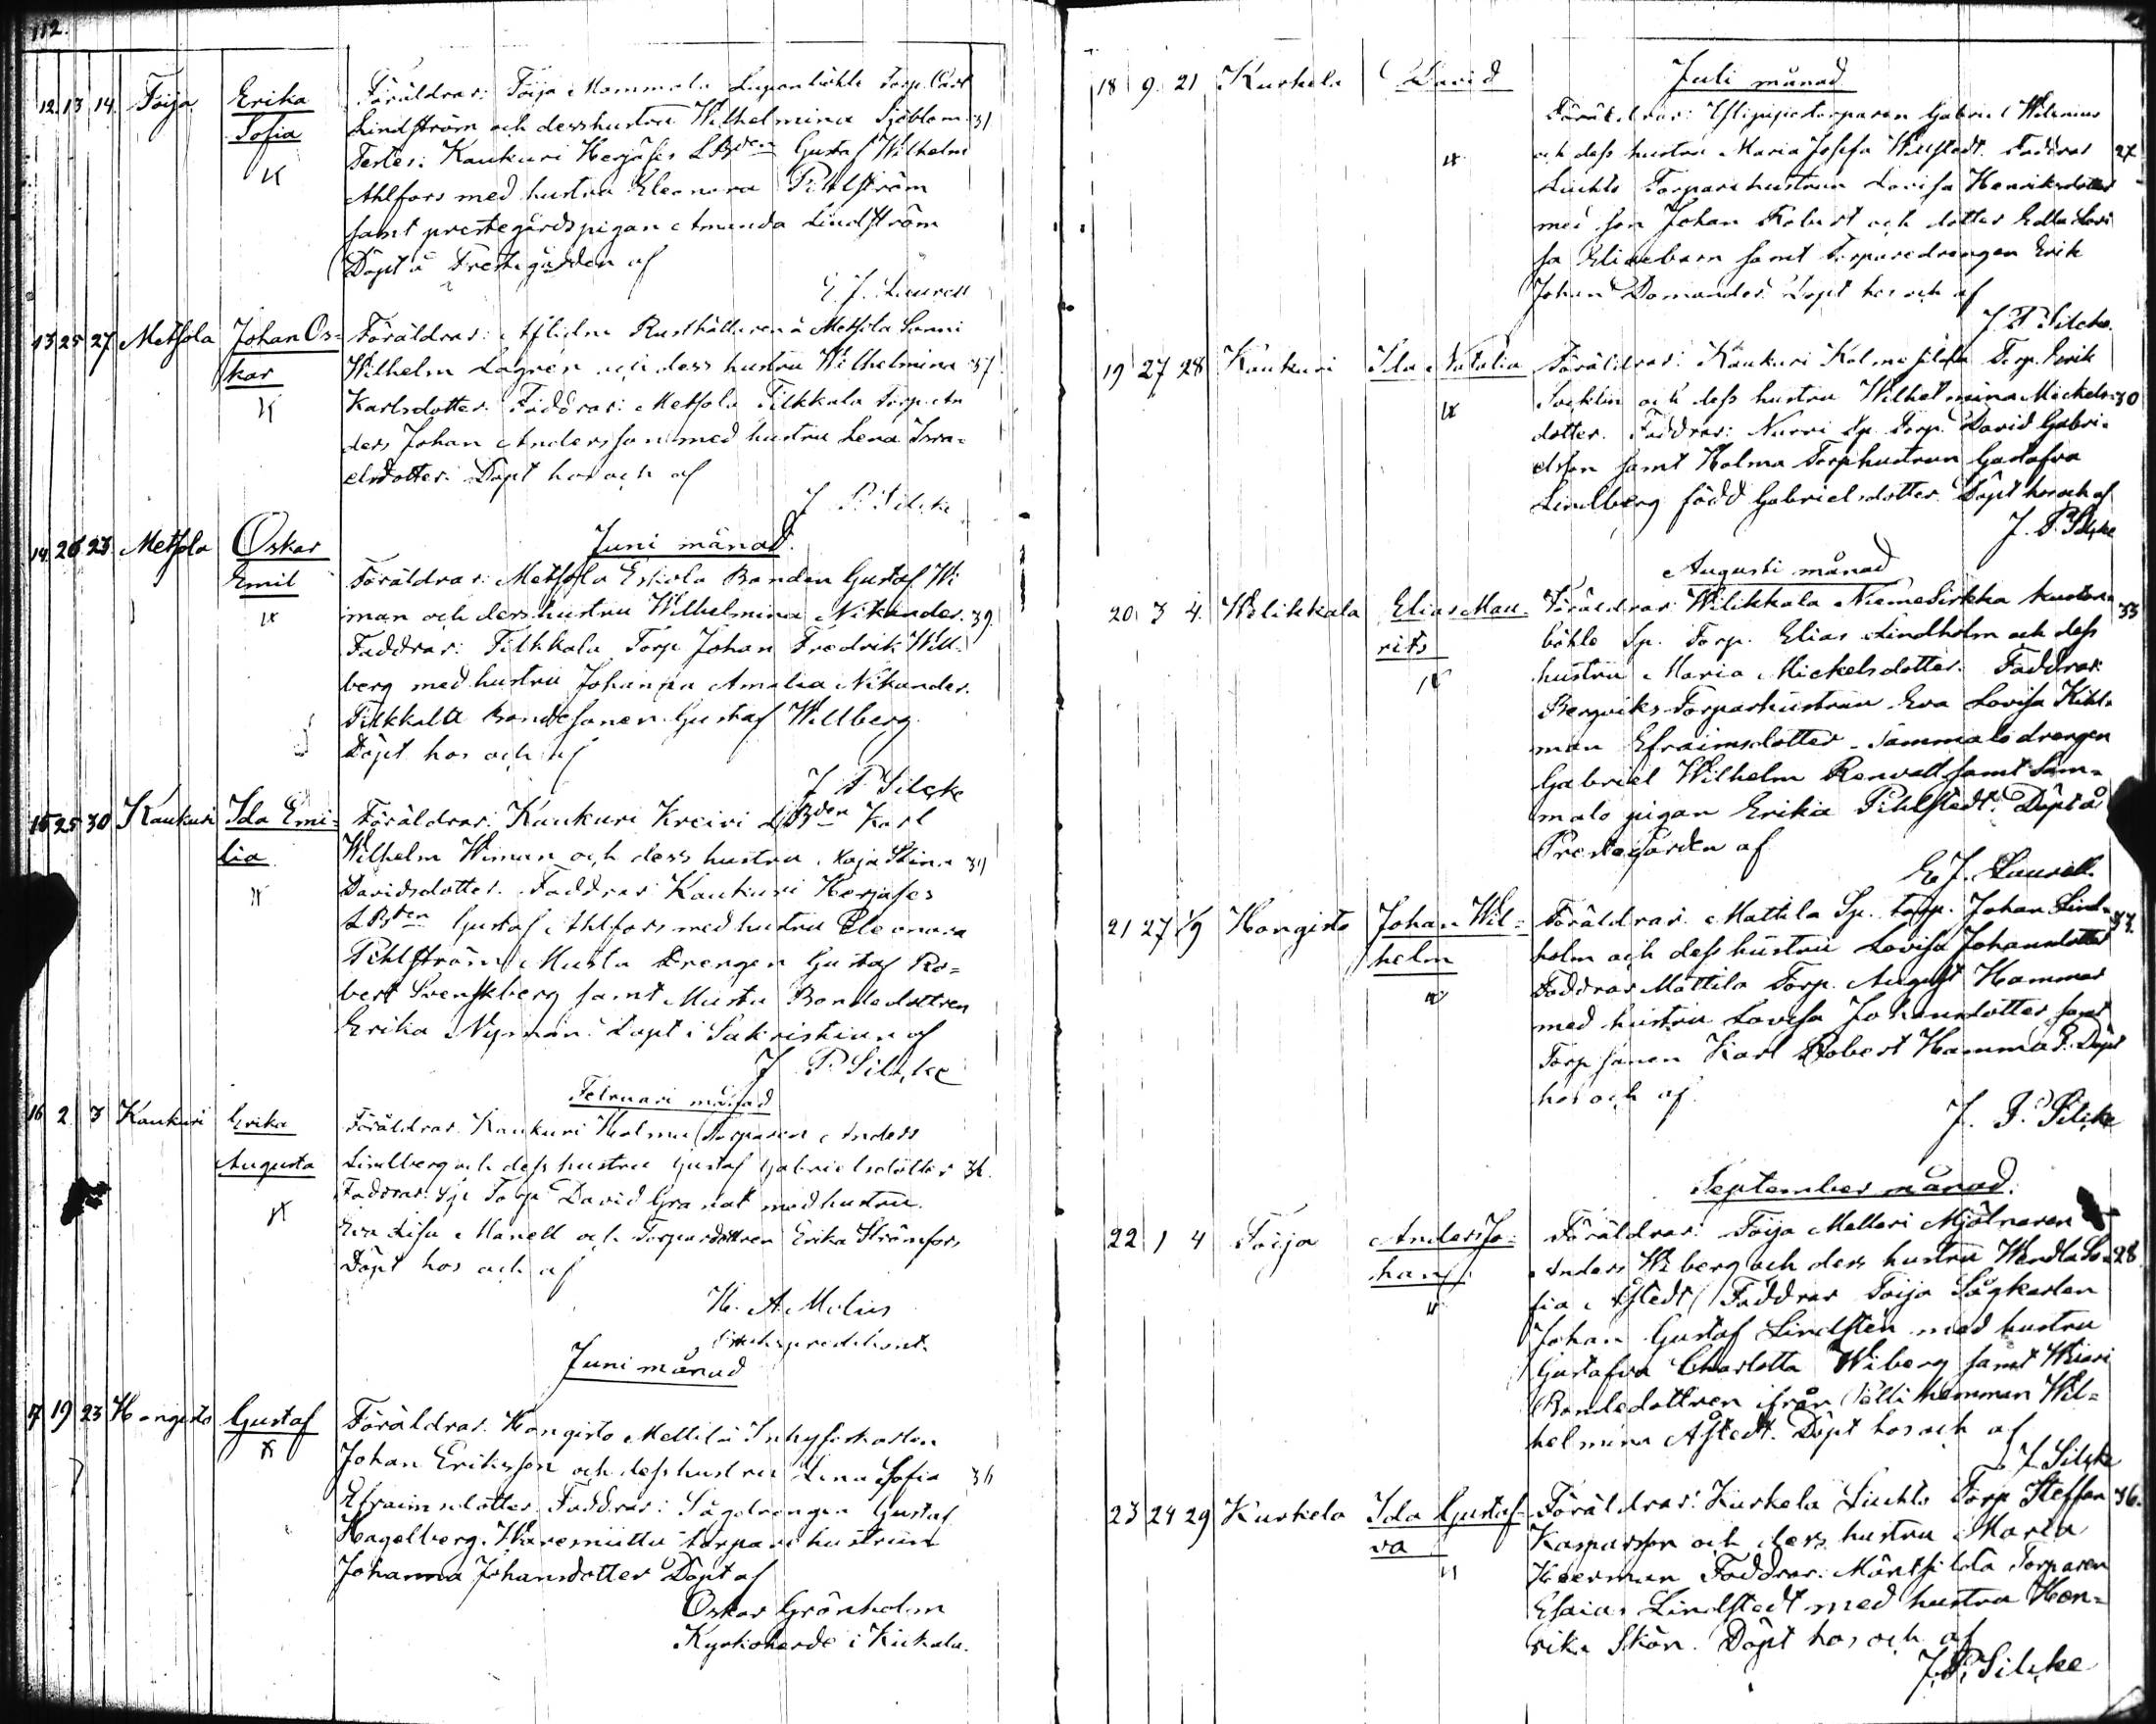 112.
12. 13 14. Toija Erika Föräldrar: Toija Mommola Torp. Carl
Sofia Lindström och dess hustru Wilhelmina Sjöblom 31
Testes: Kaukuri Herjäses LBden Gustaf Wilhelm
Ahlfors med hustru Eleonora Pihlström
samt prestegårdspigan Amanda Lindström
Döpt å Prestegården af
E. J. Laurell
13 25 27 Metsola Johan Os= Föräldrar: Aflidne Rusthållaren å Metsola
kar Wilhelm Lagren och dess hustru Wilhelmina 37.
Karlsdotter. Faddrar: Metsola Tilkkala Torp. An
ders Johan Andersson med hustru Lena Isra=
elsdotter. Döpt hos och af
J. P. Silcke
Juni månad.
14. 26 23 Metsola Oskar
Emil Föräldrar: Metsola Eskola Bonden Gustaf Wi
man och dess hustru Wilhelmina Nikander. 39.
Faddrar: Tilkkala Torp Johan Fredrik Will=
berg med hustru Johanna Amalia Nikander.
Tilkkala Bondesonen Gustaf Willberg.
Döpt hos och af
J P Silcke
15 25 30 Kaukuri Ida Emi= Föräldrar: Kaukuri Kreivi LBden Karl
lia Wilhelm Wiman och dess hustru Kaja Stina
Davidsdotter. Faddrar Kaukuri Herjäses
LBden Gustaf Ahlfors med hustru Eleonora
Pihlström Musta Drengen Gustaf Ro=
bert Svenskberg samt Musta Bondedottren
Erika Nyman. Döpt i Sakristian af
J P. Silcke
Februari månad
16 2. 3 Kaukuri Erika Föräldrar. Kaukuri Holma Torparen Anders
Augusta Lindberg och dess hustru Gustaf Gabrielsdotter 36.
Faddrar: Torp David Granat med hustru
Eva Lisa Manell och Torpardottren Erika Strömfors
Döpt hos och af
K. A. Molius
Juni månad
17 19 23 Hongisto Gustaf Föräldrar. Hongisto Mettilä Inhyseskarlen
Johan Eriksson och dess hustru Lena Sofia 36
Efraimsdotter. Faddrar: Sågdrengen Gustaf
Hagelberg. torpare hustrun
Johanna Johansdotter Döpt af
Oskar Grönholm
Kyrkoherde i Kiikala.
18 9. 21 Kurkela David Juli månad
Föräldrar: Gabriel Wilenius
och dess hustru Maria Josefa Willstedt. Faddrar 27
Liuhto Torpare hustrun Lovisa Henriksdotter
med son Johan och dotter Edla Lovi
sa samt Torparedrengen Erik
Johan Domander. Döpt hos och af
J P Silcke
19 27 28 Kaukuri Ida Natalia Föräldrar: Kaukuri Torp. Erik
och dess hustru Wilhelmina Mickels= 30
dotter. Faddrar: Nurri Sp. Torp. David Gabri=
elsson samt Holma Torphustrun Gustafva
Lindberg född Gabrielsdotter. Döpt hos och af
J. P. Silcke
Augusti månad
20 3 4. Wilikkala Elias Mau= Föräldrar Wilikkala 33
rits Sp. Torp. Elias Lindholm och dess
hustru Maria Mickelsdotter. Faddrar:
Bergviks Torparhustrun Eva Lovisa Kihl=
man Efraimsdotter. Sammalo drengen
Gabriel Wilhelm Renvall samt Sam=
malo pigan Erika Pihlstedt. Döpt å
Prestegården af
E. J. Laurell.
21 27 1/9 Hongisto Johan Wil= Föräldrar. Mattila Sp. torp. Johan Lind=
helm holm och dess hustru Lovisa Johansdotter
Faddrar Mattila Torp. August Hammar
med hustru Lovisa Johansdotter samt
Torpsonen Karl Robert Hammar. Döpt
hos och af
J. P. Silcke
September månad.
22 1 4 Toija Anders Jo= Föräldrar: Toija Melleri Mjölnaren
han Anders Wiberg och dess hustru Wendla So= 28
fia Åstedt Faddrar Toija Sågkarlen
Johan Gustaf Lindsten med hustru
Gustafva Charlotta Wiberg samt
Bondedottren ifrån hemman Wil=
helmina Åstedt. Döpt hos och af
J. Silcke
23 24 29 Kurkela Ida Gustaf= Föräldrar: Kurkela Liuhto Torp Steffan 36.
va Kasparsson och dess hustru Maria
Faddrar: Torparen
Esaias Lindstedt med hustru Hen=
rika Skön. Döpt hos och af
J. P. Silcke